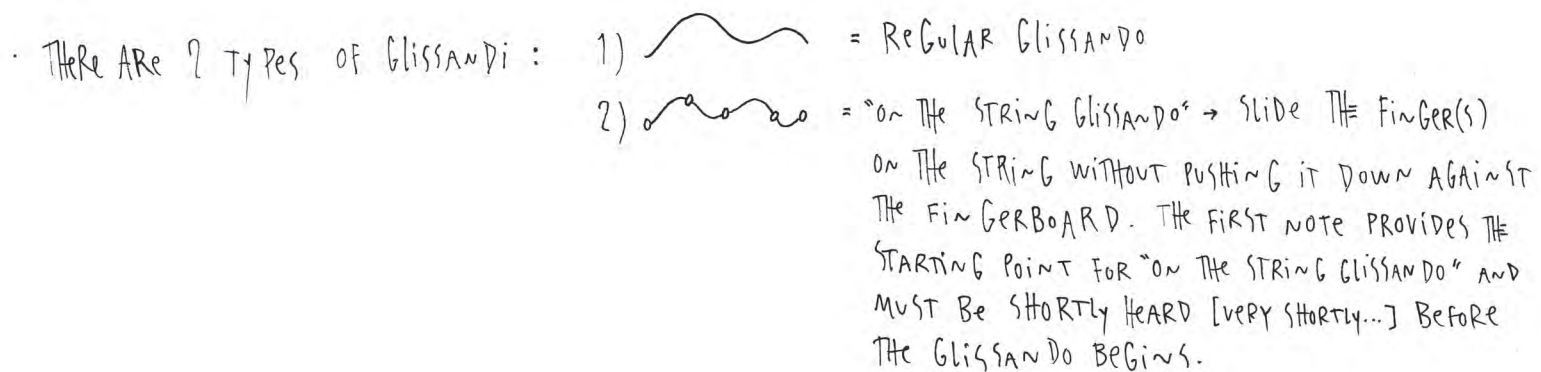 · THERE ARE 2 TYPES OF GLISSANDI : 1) = REGULAR GLISSANDO
2) = "ON THE STRING GLISSANDO" → SLIDE THE FINGER(S)
ON THE STRING WITHOUT PUSHING IT DOWN AGAINST
THE FINGERBOARD. THE FIRST NOTE PROVIDES THE
STARTING POINT FOR "ON THE STRING GLISSANDO" AND
MUST BE SHORTLY HEARD [VERY SHORTLY...] BEFORE
THE GLISSANDO BEGINS.